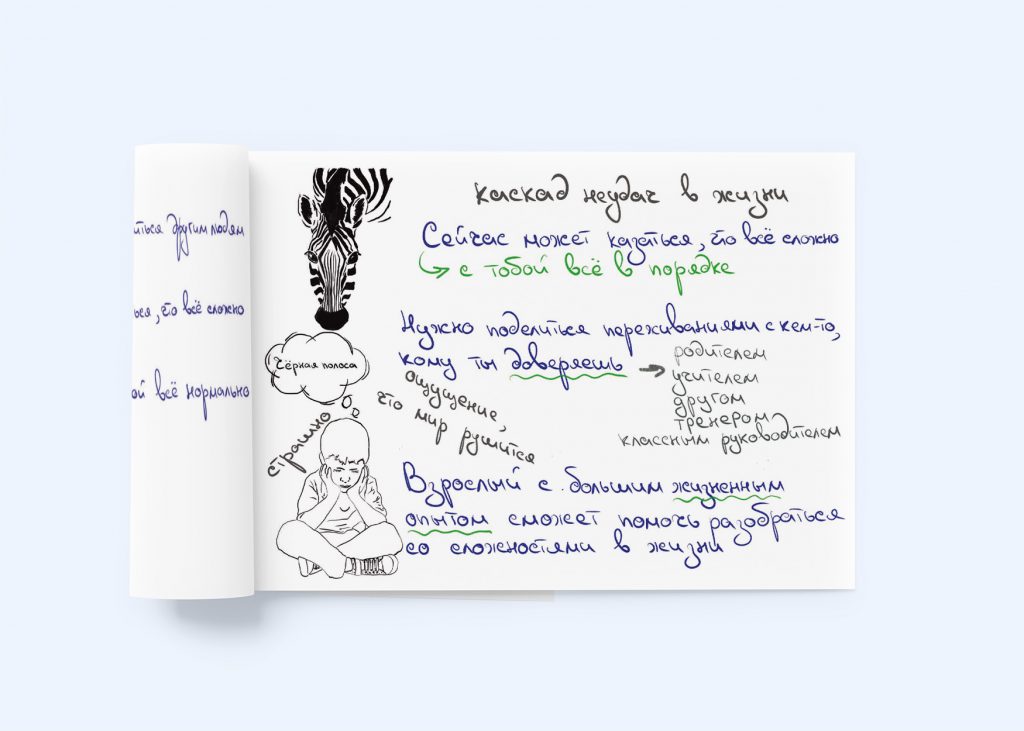 ться другим людям
ься, что всё сложно
ой всё нормально
каскад неудач в жизни
Сейчас может казаться, что всё сложно
с тобой всё в порядке
Нужно поделиться переживаниями с кем-то,
кому ты доверяешь
родителем
учителем
другом
тренером
классным руководителем
Чёрная полоса
ощущение,
что мир рушится
страшно
Взрослый с большим жизненным
опытом сможет помочь разобраться
со сложностями в жизни